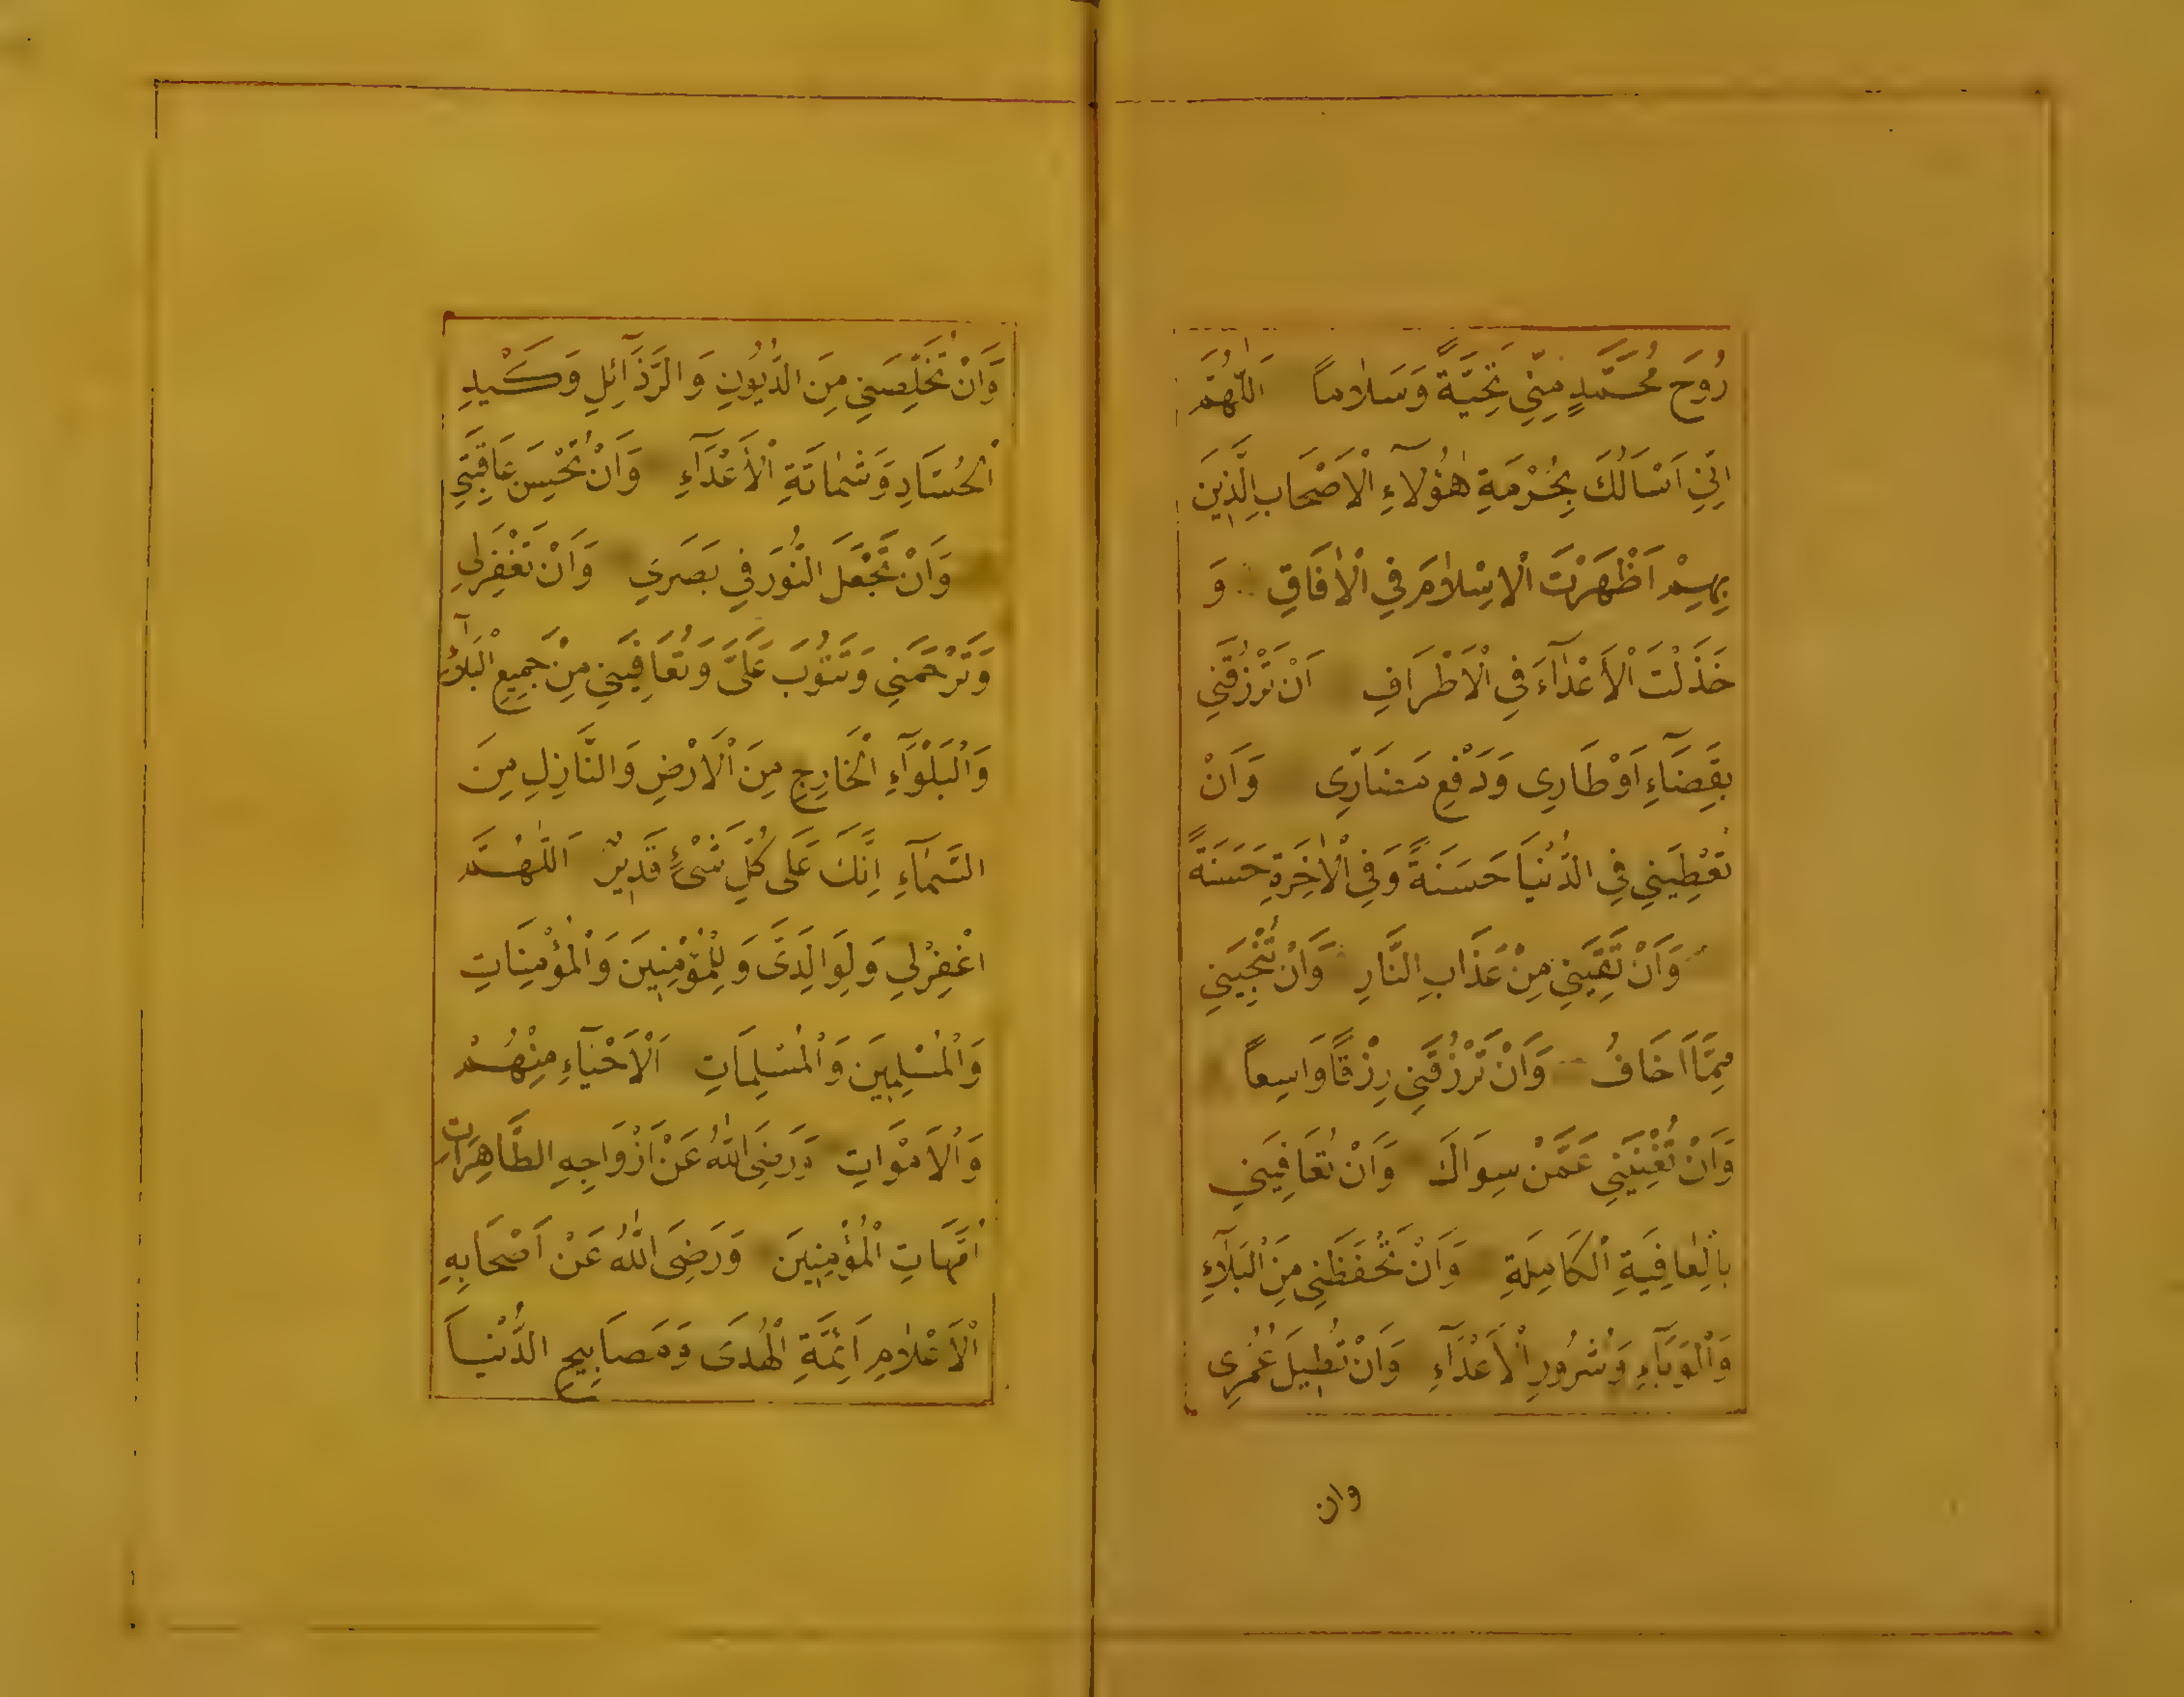 رُوحَ مُحَمَّدٍ مِنِّي تَحِيَّةً وَسَلَامًا اَللّٰهُمَّ
اِنِّي اَسْاَلُكَ بِحُرْمَةِ هٰؤُلَآءِ الْاَصْحَابِ الَّذِينَ
بِهِمْ اَظْهَرْتَ الْاِسْلَامَ فِي الْاٰفَاقِ وَ
خَذَلْتَ الْاَعْدَآءَ فِي الْاَطْرَافِ اَنْ تَرْزُقَنِي
بِقَضَآءِ اَوْطَارِى وَدَفْعِ مَضَارِّى وَاَنْ
تُعْطِيَنِي فِي الدُّنْيَا حَسَنَةً وَفِي الْاٰخِرَةِ حَسَنَةً
وَاَنْ تَقِيَنِي مِنْ عَذَابِ النَّارِ وَاَنْ تُنْجِيَنِي
مِمَّا اَخَافُ وَاَنْ تَرْزُقَنِي رِزْقًا وَاسِعًا
وَاَنْ تُغْنِيَنِي عَمَّنْ سِوَاكَ وَاَنْ تُعَافِيَنِي
بِالْعَافِيَةِ الْكَامِلَةِ وَاَنْ تَحْفَظَنِي مِنَ الْبَلَآءِ
وَالْوَبَآءِ وَشُرُورِ الْاَعْدَآءِ وَاَنْ تُطِيلَ عُمْرِى
وان
وَاَنْ تُخَلِّصَنِي مِنَ الدُّيُونِ وَالرَّذَآئِلِ وَكَيْدِ
الْحُسَّادِ وَشَمَاتَةِ الْاَعْدَآءِ وَاَنْ تُحْسِنَ عَاقِبَتِي
وَاَنْ تَجْعَلَ النُّورَ فِي بَصَرِي وَاَنْ تَغْفِرَلِي
وَتَرْحَمَنِي وَتَتُوبَ عَلَىَّ وَتُعَافِيَنِي مِنْ جَمِيعِ الْبَلَآءِ
وَالْبَلْوَآءِ الْخَارِجِ مِنَ الْاَرْضِ وَالنَّازِلِ مِنَ
السَّمَآءِ اِنَّكَ عَلَى كُلِّ شَىْءٍ قَدِيرٌ اَللّٰهُمَّ
اغْفِرْلِي وَلِوَالِدَىَّ وَلِلْمُؤْمِنِينَ وَالْمُؤْمِنَاتِ
وَالْمُسْلِمِينَ وَالْمُسْلِمَاتِ اَلْاَحْيَآءِ مِنْهُمْ
وَالْاَمْوَاتِ وَرَضِىَ اللّٰهُ عَنْ اَزْوَاجِهِ الطَّاهِرَاتِ
اُمَّهَاتِ الْمُؤْمِنِينَ وَرَضِىَ اللّٰهُ عَنْ اَصْحَابِهِ
الْاَعْلَامِ اَئِمَّةِ الْهُدَى وَمَصَابِيحِ الدُّنْيَا